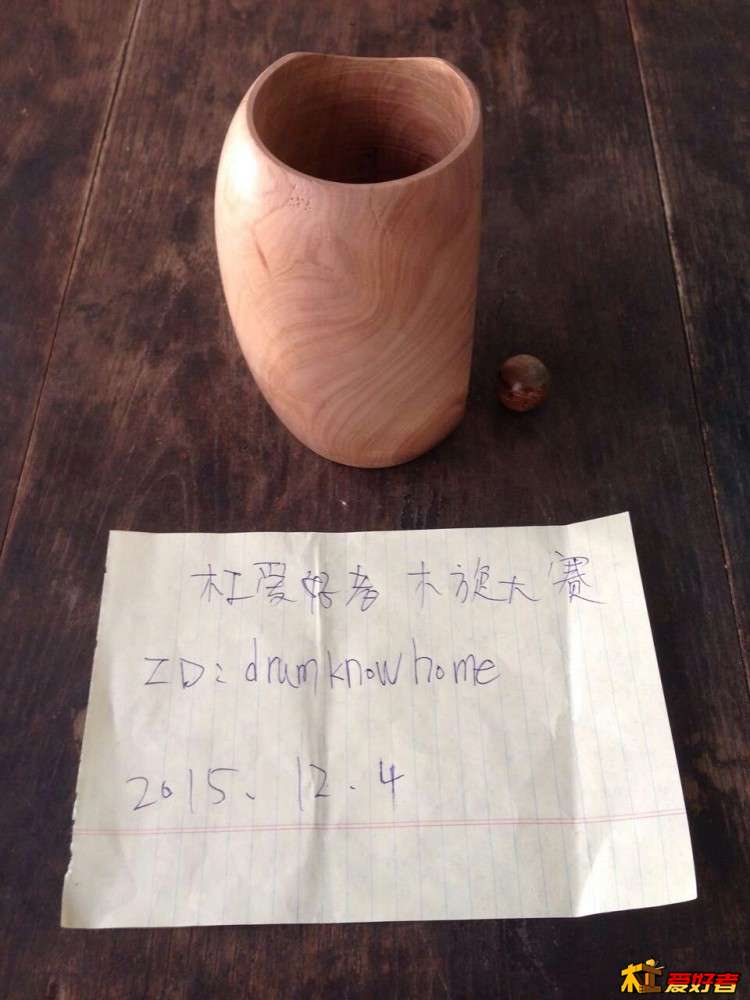 木工爱好者 木旋大赛
ID: drumknowhome
2015.12.4
木工爱好者